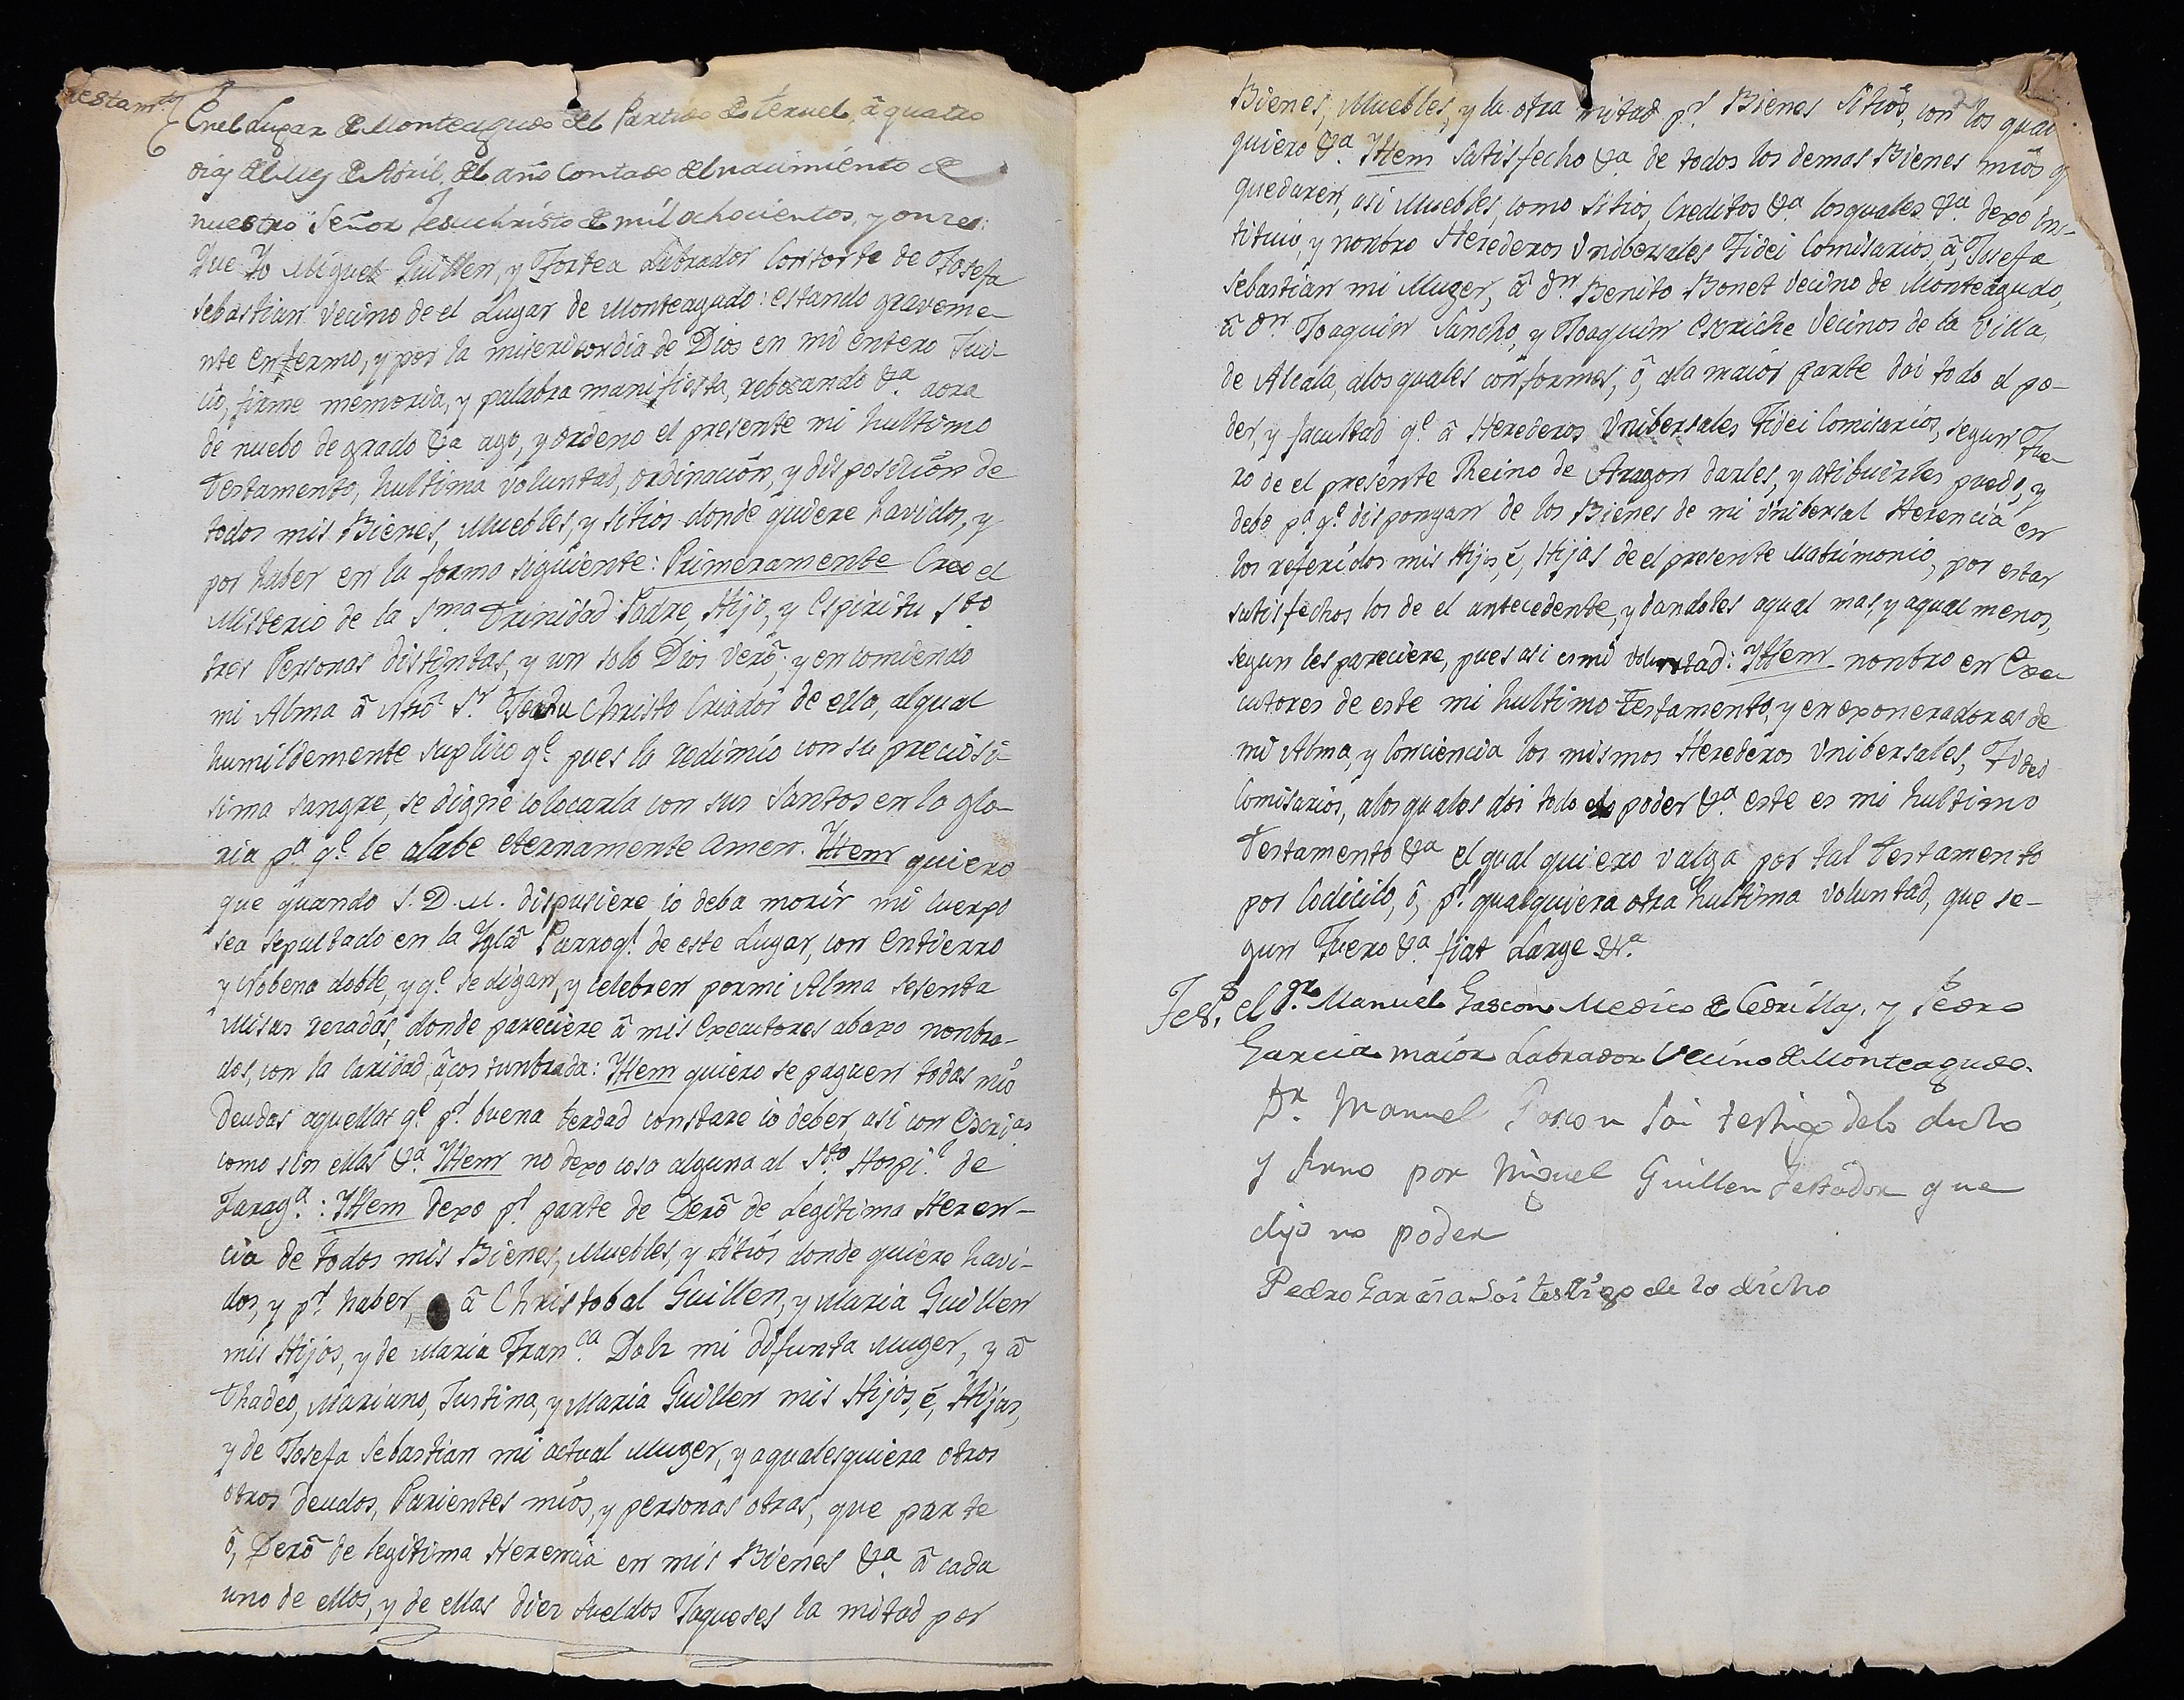 Testam.to
En el Lugar de Monteagudo del Partido de Teruel â quatro
dias del Mes de Abril, del año Contado del nacimiento de
nuestro Señor Jesuchristo de mil ochocientos, y onze:
Que Yo Miguel Guillen, y Fortea Labrador Consorte de Josefa
Sebastian vecino de el Lugar de Monteagudo: estando graveme-
nte enfermo, y por la misericordia de Dios en mi entero Jui-
cio, firme memoria, y palabra manifiesta, rebocando &a aora
de nuebo de grado &a ago, y ordeno el presente mi hultimo
Testamento, hultima voluntad, ordinación, y disposición de
todos mis Bienes, Muebles, y sitios donde quiere havidos, y
por haber en la forma siguiente: Primeramente Creo el
Misterio de la Sma Trinidad Padre, Hijo, y Espiritu Sto
tres Personas distintas, y un solo Dios verô. y encomiendo
mi Alma â Ntrô Sr. Jesu Christo Criador de ella, alqual
humildemente suplico qe. pues la redimio con su preciosi-
sima sangre, se digne colocarla con sus Santos en la glo-
ria pa qe. le alabe eternamente amen. Ittem quiero
que quando S. D. M. dispusiere io deba morir mi cuerpo
sea sepultado en la Yglâ Parroql de este Lugar, con Entierro
y Nobena doble, y qe. se digan, y celebren por mi Alma sesenta
Misas rezadas, donde pareciere â mis Executores abaxo nonbra-
dos, con la caridad âcostunbrada: Ittem quiero se paguen todas mis
Deudas aquellas qe. pr. buena berdad constare io deber, asi con Escrias
como sin ellas &a. Ittem no dexo cosa alguna al Sto. Hospi.l de
Zarag.a: Ittem dexo pr. parte de Derô de Legitima Heren-
cia de todos mis Bienes, Muebles, y sitios donde quiere havi-
dos, y pr. haber, â Christobal Guillen, y Maria Guillen
mis Hijos, y de Maria Fran.ca Dolz mi difunta Muger, y â
Thadeo, Mariano, Justina, y Maria Guillen mis Hijos, é, Hijas,
y de Josefa Sebastian mi actual Muger, y a qualesquiera otros
otros deudos, Parientes mios, y personas otras, que parte
ô, Derô de legitima Herencia en mis Bienes &a. â cada
uno de ellos, y de ellas diez sueldos Jaqueses la mitad por
Bienes, Muebles, y la otra mitad pr. Bienes Sitios, con los qual
quiero &a. Ittem satisfecho &a. de todos los demas Bienes mios q
quedaren, asi Muebles, como Sitios, Creditos &a. los quales &a. dexo Ins-
tituio, y nonbro Herederos Unibersales Fidei Comisarios â, Josefa
Sebastian mi Muger, â Dn. Benito Bonet vecino de Monteagudo,
â Dn Joaquin Sancho, y Joaquin Escriche Vecinos de la Villa
de Alcala, alos quales conformes, ô, ala maior parte doi todo el po-
der, y facultad qe. â Herederos Unibersales Fidei Comisarios, segun Fue-
ro de el presente Reino de Aragon darles, y atibuirles puedo, y
debo pa. qe. dispongan de los Bienes de mi Unibersal Herencia en
los referidos mis Hijos, é, Hijas de el presente Matrimonio, por estar
satisfechos los de el antecedente, y dandoles aqual mas, y aqual menos,
segun les pareciere, pues asi es mi voluntad: Ittem nonbro en Exe-
cutores de este mi hultimo Testamento, y en exoneradores de
mi Alma, y Conciencia los mismos Herederos Unibersales, Fidei
Comisarios, alos quales doi todo el poder &a. este es mi hultimo
Testamento &a el qual quiero valga por tal Testamento
por Codicilo, ô, pr. qualquiera otra hultima voluntad, que se-
gun Fuero &a. fiat Large &a.
Tes. el Dr. Manuel Gascon Medico de Cedrillas, y Pedro
Garcia maior Labrador Vecino de Monteagudo.
Dr. Manuel Gascon soi testigo delo dicho
y firmo por Miguel Guillen testador que
dijo no poder
Pedro Garcia Soi testigo de lo dicho